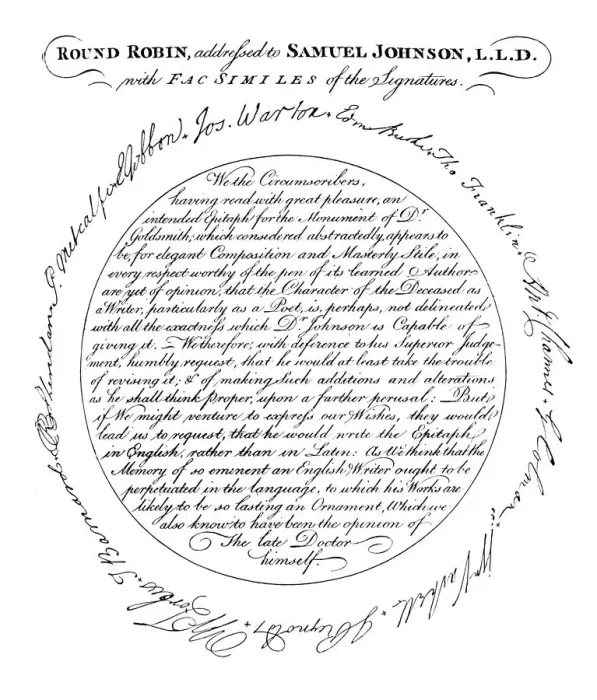 ROUND ROBIN, addressed to SAMUEL JOHNSON, L.L.D.
with FAC SIMILES of the Signatures.
We the Circumscribers,
having read with great pleasure, an
intended Epitaph for the Monument of Dr.
Goldsmith, which considered abstractedly, appears to
be, for elegant Composition and Masterly Stile, in
every respect worthy of the pen of its learned Author,
are yet of opinion, that the Character of the Deceased as
a Writer, particularly as a Poet, is, perhaps, not delineated
with all the exactness which Dr. Johnson is Capable of
giving it. — We therefore, with deference to his Superior Judge-
ment, humbly request, that he would at least take the trouble
of revising it; & of making Such additions and alterations
as he shall think proper, upon a farther perusal: But
if We might venture to express our Wishes, they would
lead us to request, that he would write the Epitaph
in English, rather than in Latin: As We think that the
Memory of so eminent an English Writer ought to be
perpetuated in the language, to which his Works are
likely to be so lasting an Ornament, Which we
also know to have been the opinion of
The late Doctor
himself.
Jos. Warton
Edm Burke
Tho Franklin
Ant Chamier
G Colman
Wm Vashell
J Reynolds
W Forbes
T Barnard
R B Sheridan
P. Metcalf
E Gibbon